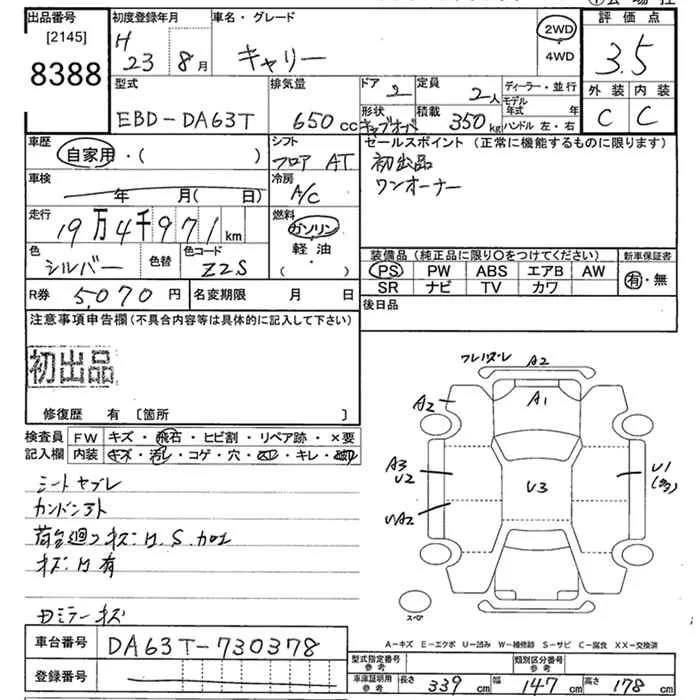 出品番号
[2145]
8388
初度登録年月
H 23 8月
車名・グレード
キャリー
2WD
4WD
評価点
3.5
外装 内装
C C
型式
EBD-DA63T
排気量
650 cc
ドア 2
形状
キャブオーバ
定員
2人
積載
350 kg
ディーラー・並行
モデル年式 年
ハンドル 左・右
車歴
自家用・( )
シフト
フロア AT
セールスポイント (正常に機能するものに限ります)
初出品
ワンオーナー
車検
年 月( 日)
冷房
A/C
走行
19万4千971 km
燃料
ガソリン
軽油
( )
色
シルバー
色替
色コード
Z2S
装備品 (純正品に限り〇をつけてください)
PS PW ABS エアB AW
SR ナビ TV カワ
新車保証書
有・無
R券 5,070 円
名変期限 月 日
後日品
注意事項申告欄 (不具合内容等は具体的に記入して下さい)
初出品
修復歴 有 〔箇所 〕
検査員
記入欄
FW キズ・飛石・ヒビ割・リペア跡・×要
内装 キズ・汚レ・コゲ・穴・スレ・キレ・
シートヤブレ
A2
A2
A1
A3
U2
U3
U1
UA2
スペア
A-キズ E-エクボ U-凹み W-補修跡 S-サビ C-腐食 XX-交換済
車台番号
DA63T-730378
登録番号
型式指定番号
参考
類別区分番号
参考
車庫証明用
参考
長さ 339 cm 幅 147 cm 高さ 178 cm